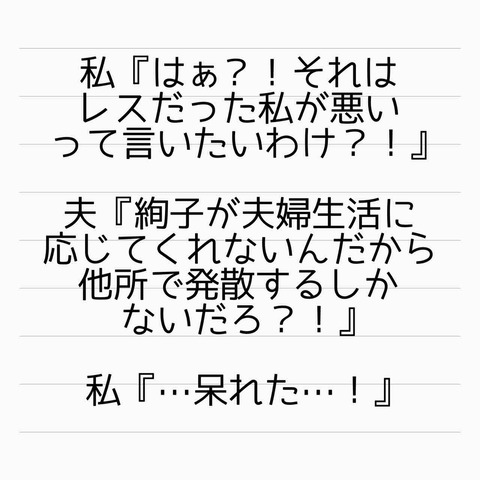 私『はぁ？！それは
レスだった私が悪い
って言いたいわけ？！』
夫『絢子が夫婦生活に
応じてくれないんだから
他所で発散するしか
ないだろ？！』
私『…呆れた…！』